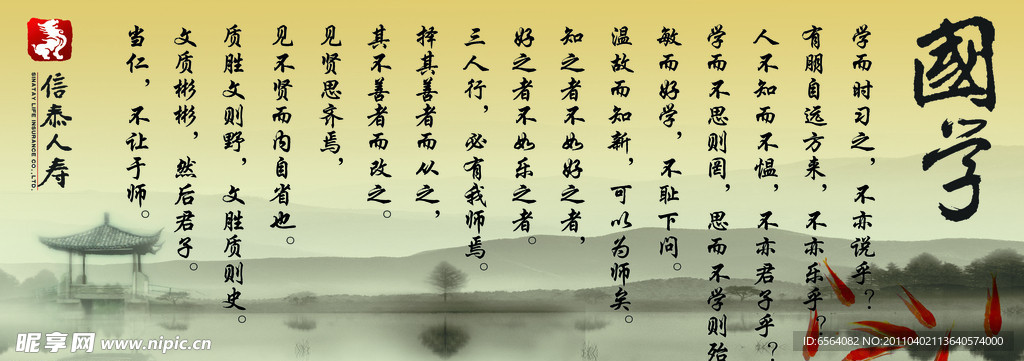 國学
学而时习之，不亦说乎？
有朋自远方来，不亦乐乎？
人不知而不愠，不亦君子乎？
学而不思则罔，思而不学则殆
敏而好学，不耻下问。
温故而知新，可以为师矣。
知之者不如好之者，
好之者不如乐之者。
三人行，必有我师焉。
择其善者而从之，
其不善者而改之。
见贤思齐焉，
见不贤而内自省也。
质胜文则野，文胜质则史。
文质彬彬，然后君子。
当仁，不让于师。
信泰人寿
SINATAY LIFE INSURANCE CO., LTD.
昵享网 www.nipic.cn
ID:6564082 NO:20110402113640574000